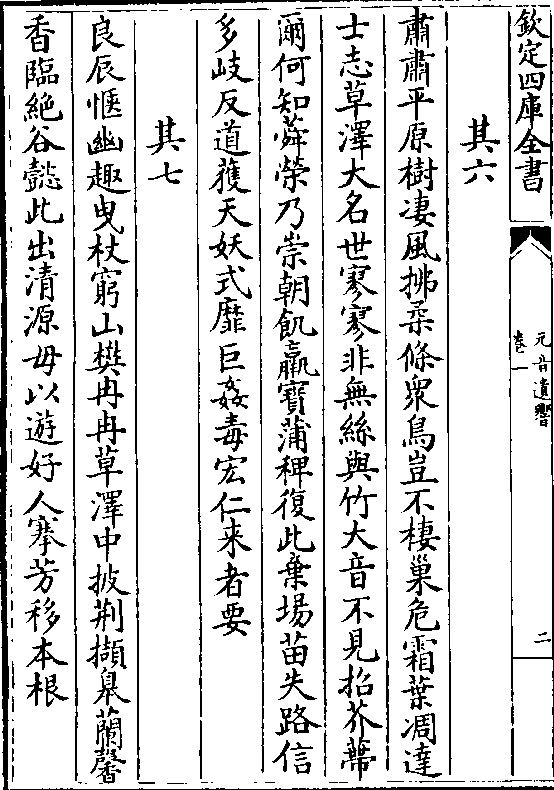 欽定四庫全書
元音遺響
卷一
二
其六
肅肅平原樹凄風拂柔條衆鳥豈不棲巢危霜葉凋達
士志草澤大名世寥寥非無絲與竹大音不見招芥蔕
爾何知蕣榮乃崇朝飢羸寳蒲稗復此棄塲苗失路信
多岐反道獲天妖式靡巨姦毒宏仁来者要
其七
良辰愜幽趣曳杖窮山樊冉冉草澤中披荆擷臯蘭馨
香臨絶谷懿此出清源毋以遊好人搴芳移本根